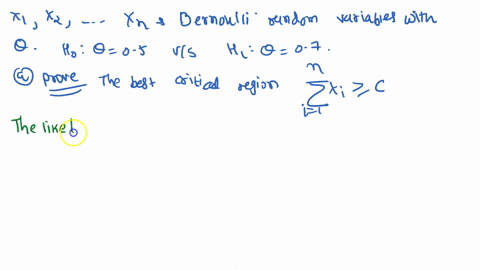 X1, X2, .... Xn ~ Bernoulli random variables with
θ. H0: θ = 0.5 v/s H1: θ = 0.7.
(a) prove The best critical region n∑i=1 Xi ≥ C
The likel